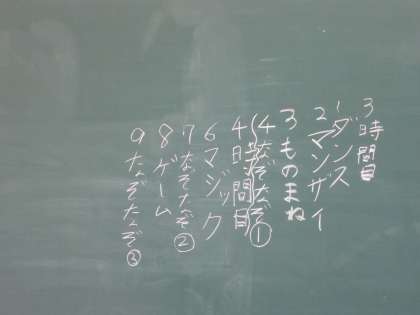 3時間目
1ダンス
2マンザイ
3ものまね
4なぞなぞ①
4時間目
6マジック
7なぞなぞ②
8ゲーム
9なぞなぞ③